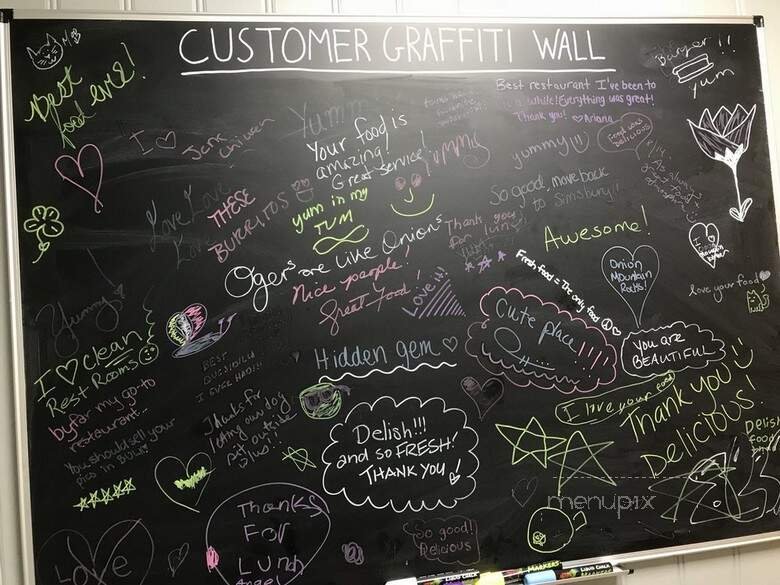 CUSTOMER GRAFFITI WALL
Best
food ever!
I ♡ Jerk
Chicken
Yumm
Your food is
amazing!
Great Service!
Yummy
Best restaurant I've been to
while! Everything was great!
Thank you! ♡ Ariana
Burger!!
yum
yummy!!)
food was
delicious
Love Love
THESE
BURRITOS
yum in my
TUM
So good, move back
to Simsbury!!
Thank you
for lunch
Awesome!
Ogers are like Onions
Nice people!
great food!
Love it!!
Fresh food = The only food
Onion
Mountain
Rocks!
love your food
Yummy
I ♡ clean
Rest Rooms
by far my go-to
restaurant...
You should sell your
pics in BULK!
BEST
QUESIDILLA
I EVER HAD!!!
Thanks for
letting our dog
pet outside
Hidden gem ♡
Cute place!!!!
You are
BEAUTIFUL
I love your food
Thank you!!
DELICIOUS!
Delish!!!
and so FRESH!
THANK YOU!
Delish
food
Love
Thanks
For
Lunch
Angel
So good!
Delicious
menupix
MARKERS
LIQUID CHALK
LIQUID CHALK